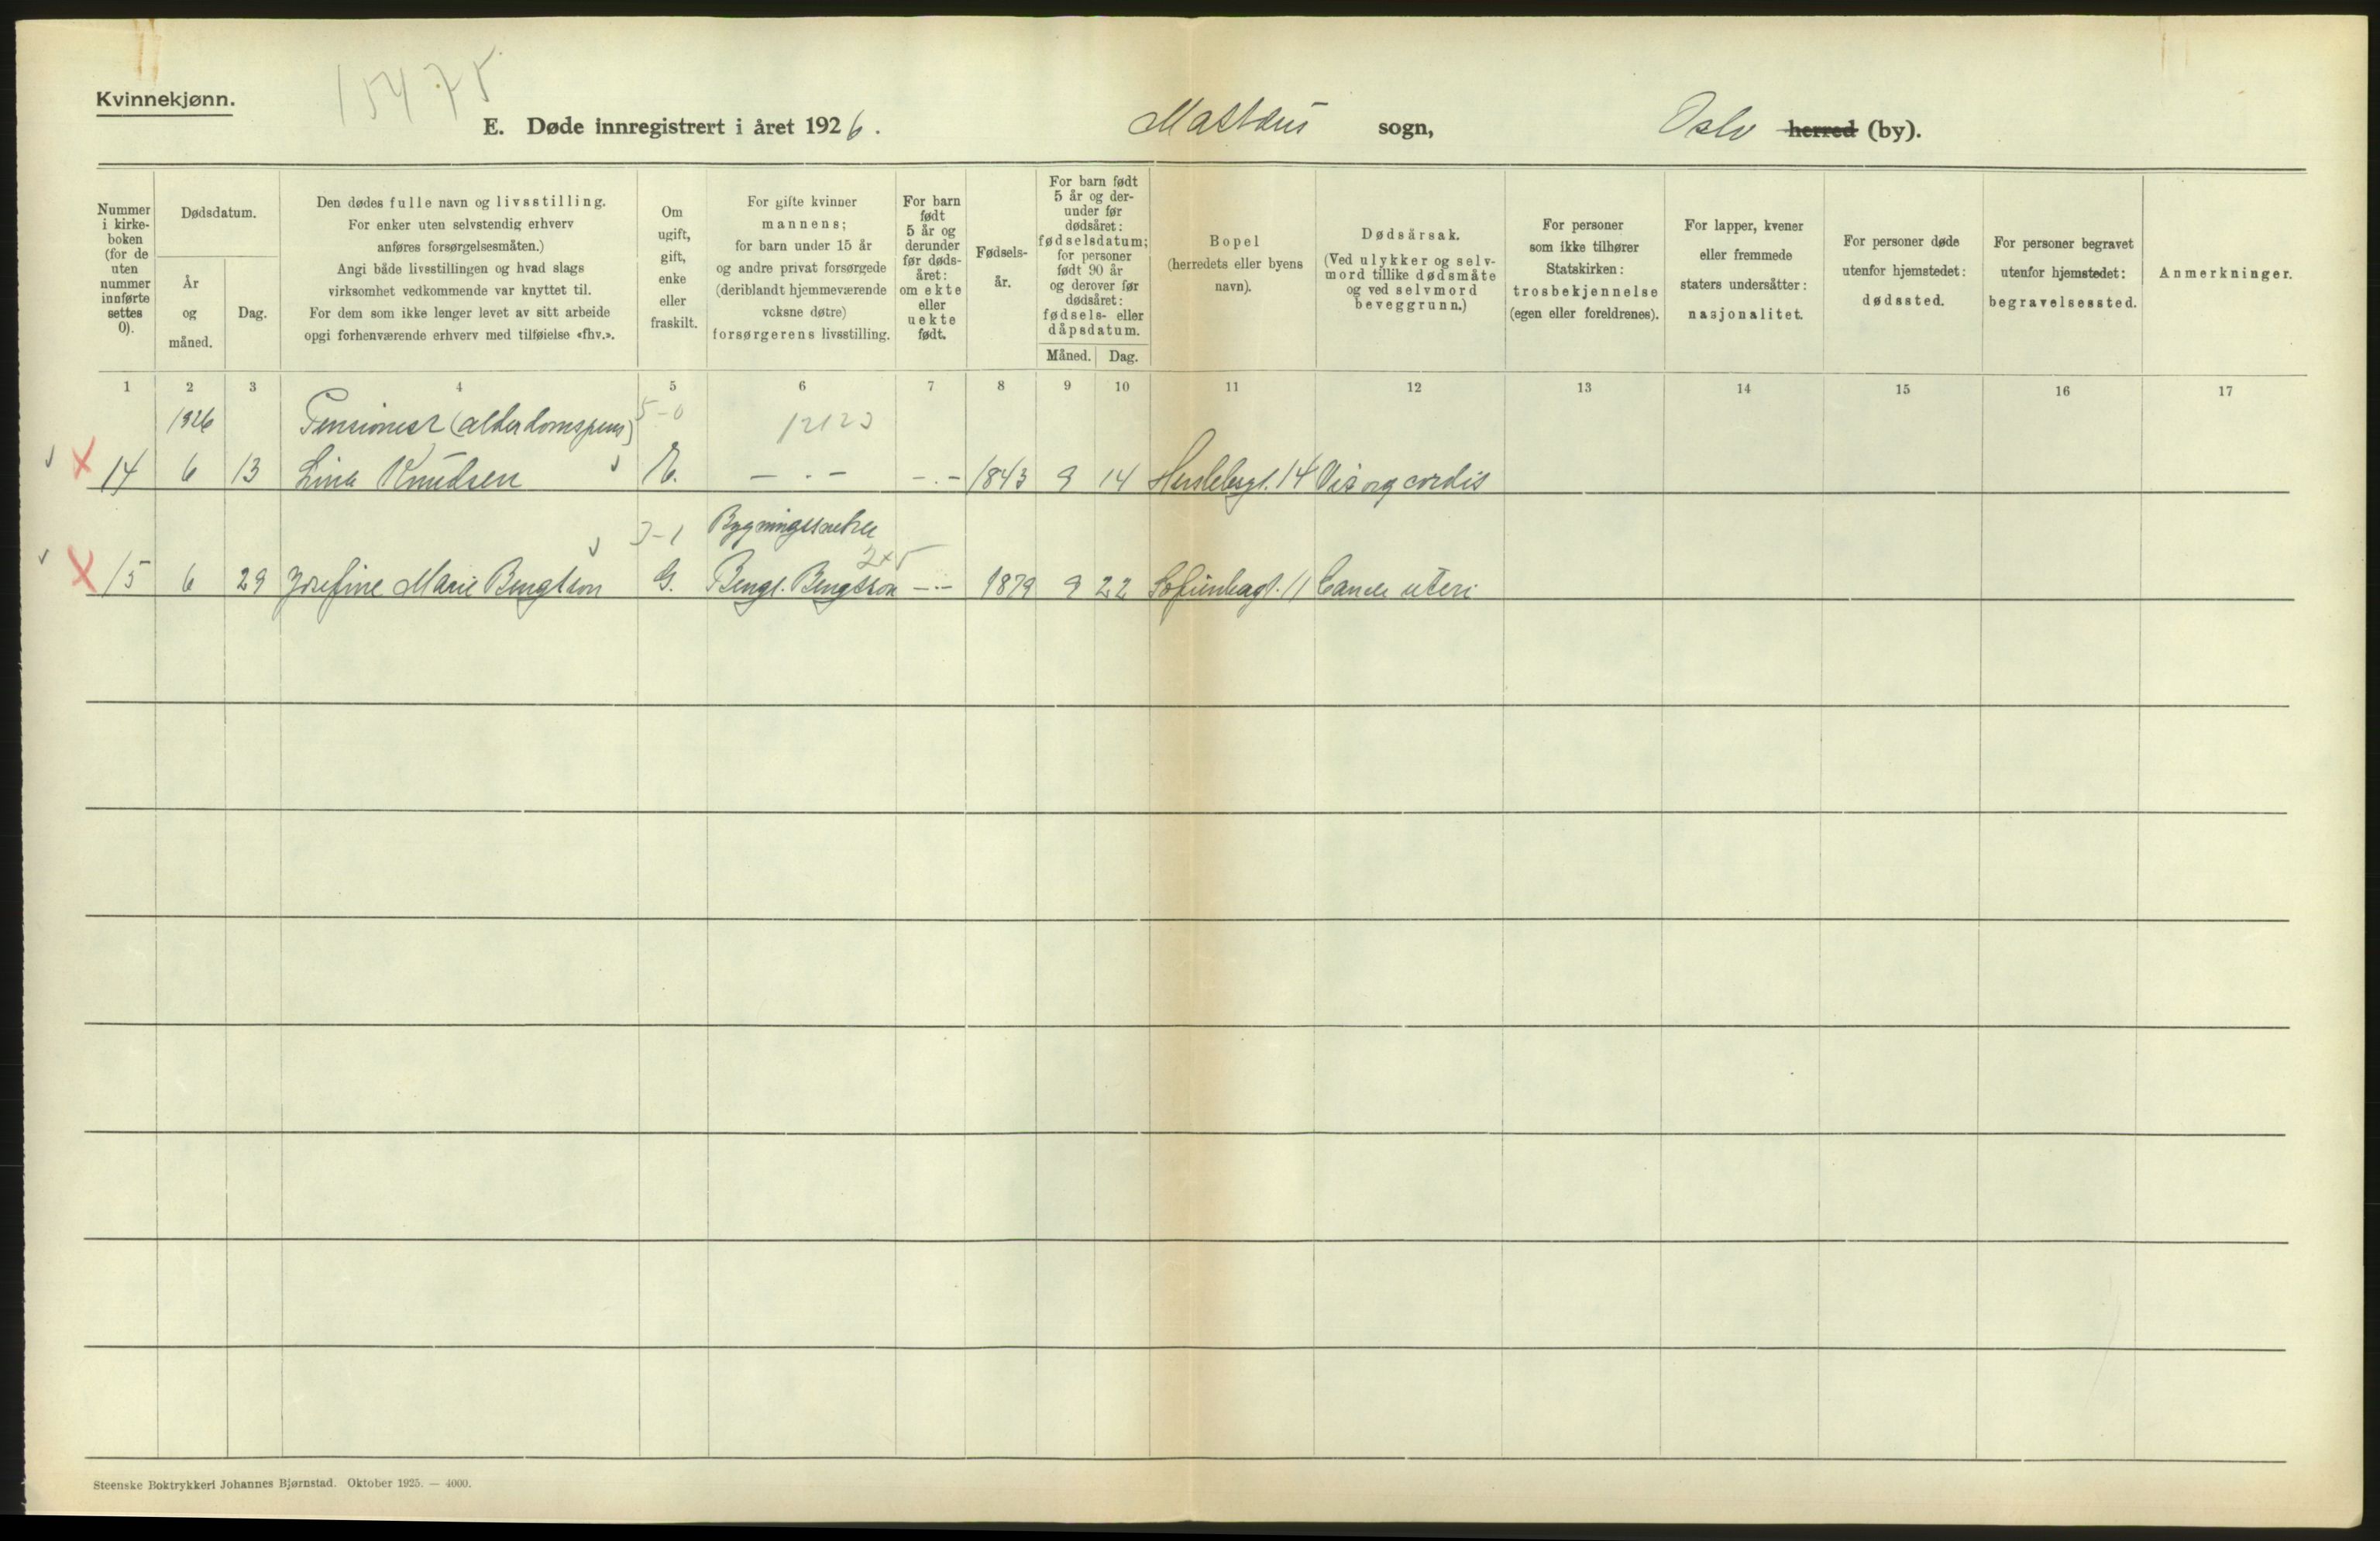 Kvinnekjønn.
15475
E. Døde innregistrert i året 1926. Mattæus sogn, Oslo herred (by).
Nummer i kirke-boken (for de uten nummer innførte settes 0).
Dødsdatum.
År og måned.
Dag.
Den dødes fulle navn og livsstilling.
For enker uten selvstendig erhverv
anføres forsørgelsesmåten.)
Angi både livsstillingen og hvad slags
virksomhet vedkommende var knyttet til.
For dem som ikke lenger levet av sitt arbeide
opgi forhenværende erhverv med tilføielse «fhv.».
Om ugift, gift, enke eller fraskilt.
For gifte kvinner
mannens;
for barn under 15 år
og andre privat forsørgede
(deriblandt hjemmeværende
voksne døtre)
forsørgerens livsstilling.
For barn født 5 år og derunder før døds-året: om ekte eller uekte født.
Fødsels-år.
For barn født 5 år og der-under før dødsåret: fødselsdatum; for personer født 90 år og derover før dødsåret: fødsels- eller dåpsdatum.
Måned. Dag.
Bopel
(herredets eller byens
navn).
Dødsårsak.
(Ved ulykker og selv-
mord tillike dødsmåte
og ved selvmord
beveggrunn.)
For personer
som ikke tilhører
Statskirken:
trosbekjennelse
(egen eller foreldrenes).
For lapper, kvener
eller fremmede
staters undersåtter:
nasjonalitet.
For personer døde
utenfor hjemstedet:
dødssted.
For personer begravet
utenfor hjemstedet:
begravelsessted.
Anmerkninger.
1 2 3 4 5 6 7 8 9 10 11 12 13 14 15 16 17
1926 Pensionist (alderdomspens) 5-0 12123
14 6 13 Lina Knudsen E. — . — — . — 1843 9 14 Herslebsgt. 14 Vit org cordis
3-1 Bygningssnekker
2+5
15 6 29 Josefine Marie Bengtson G. Bengt. Bengtson — . — 1879 9 22 Sofienbergt. 11 Cancer uteri
Steenske Boktrykkeri Johannes Bjørnstad. Oktober 1925. — 4000.